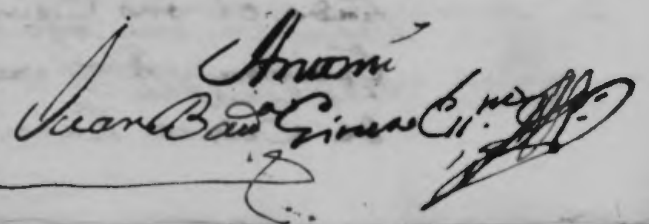 Antemi
Juan Bau.ᵃ Giner Eₛ.ⁿᵒ